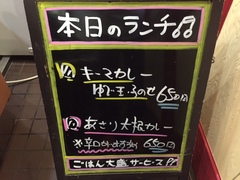 本日のランチ
キーマカレー
ゆで玉子のせ 650円
あさり大根カレー
650円
ごはん大盛サービス